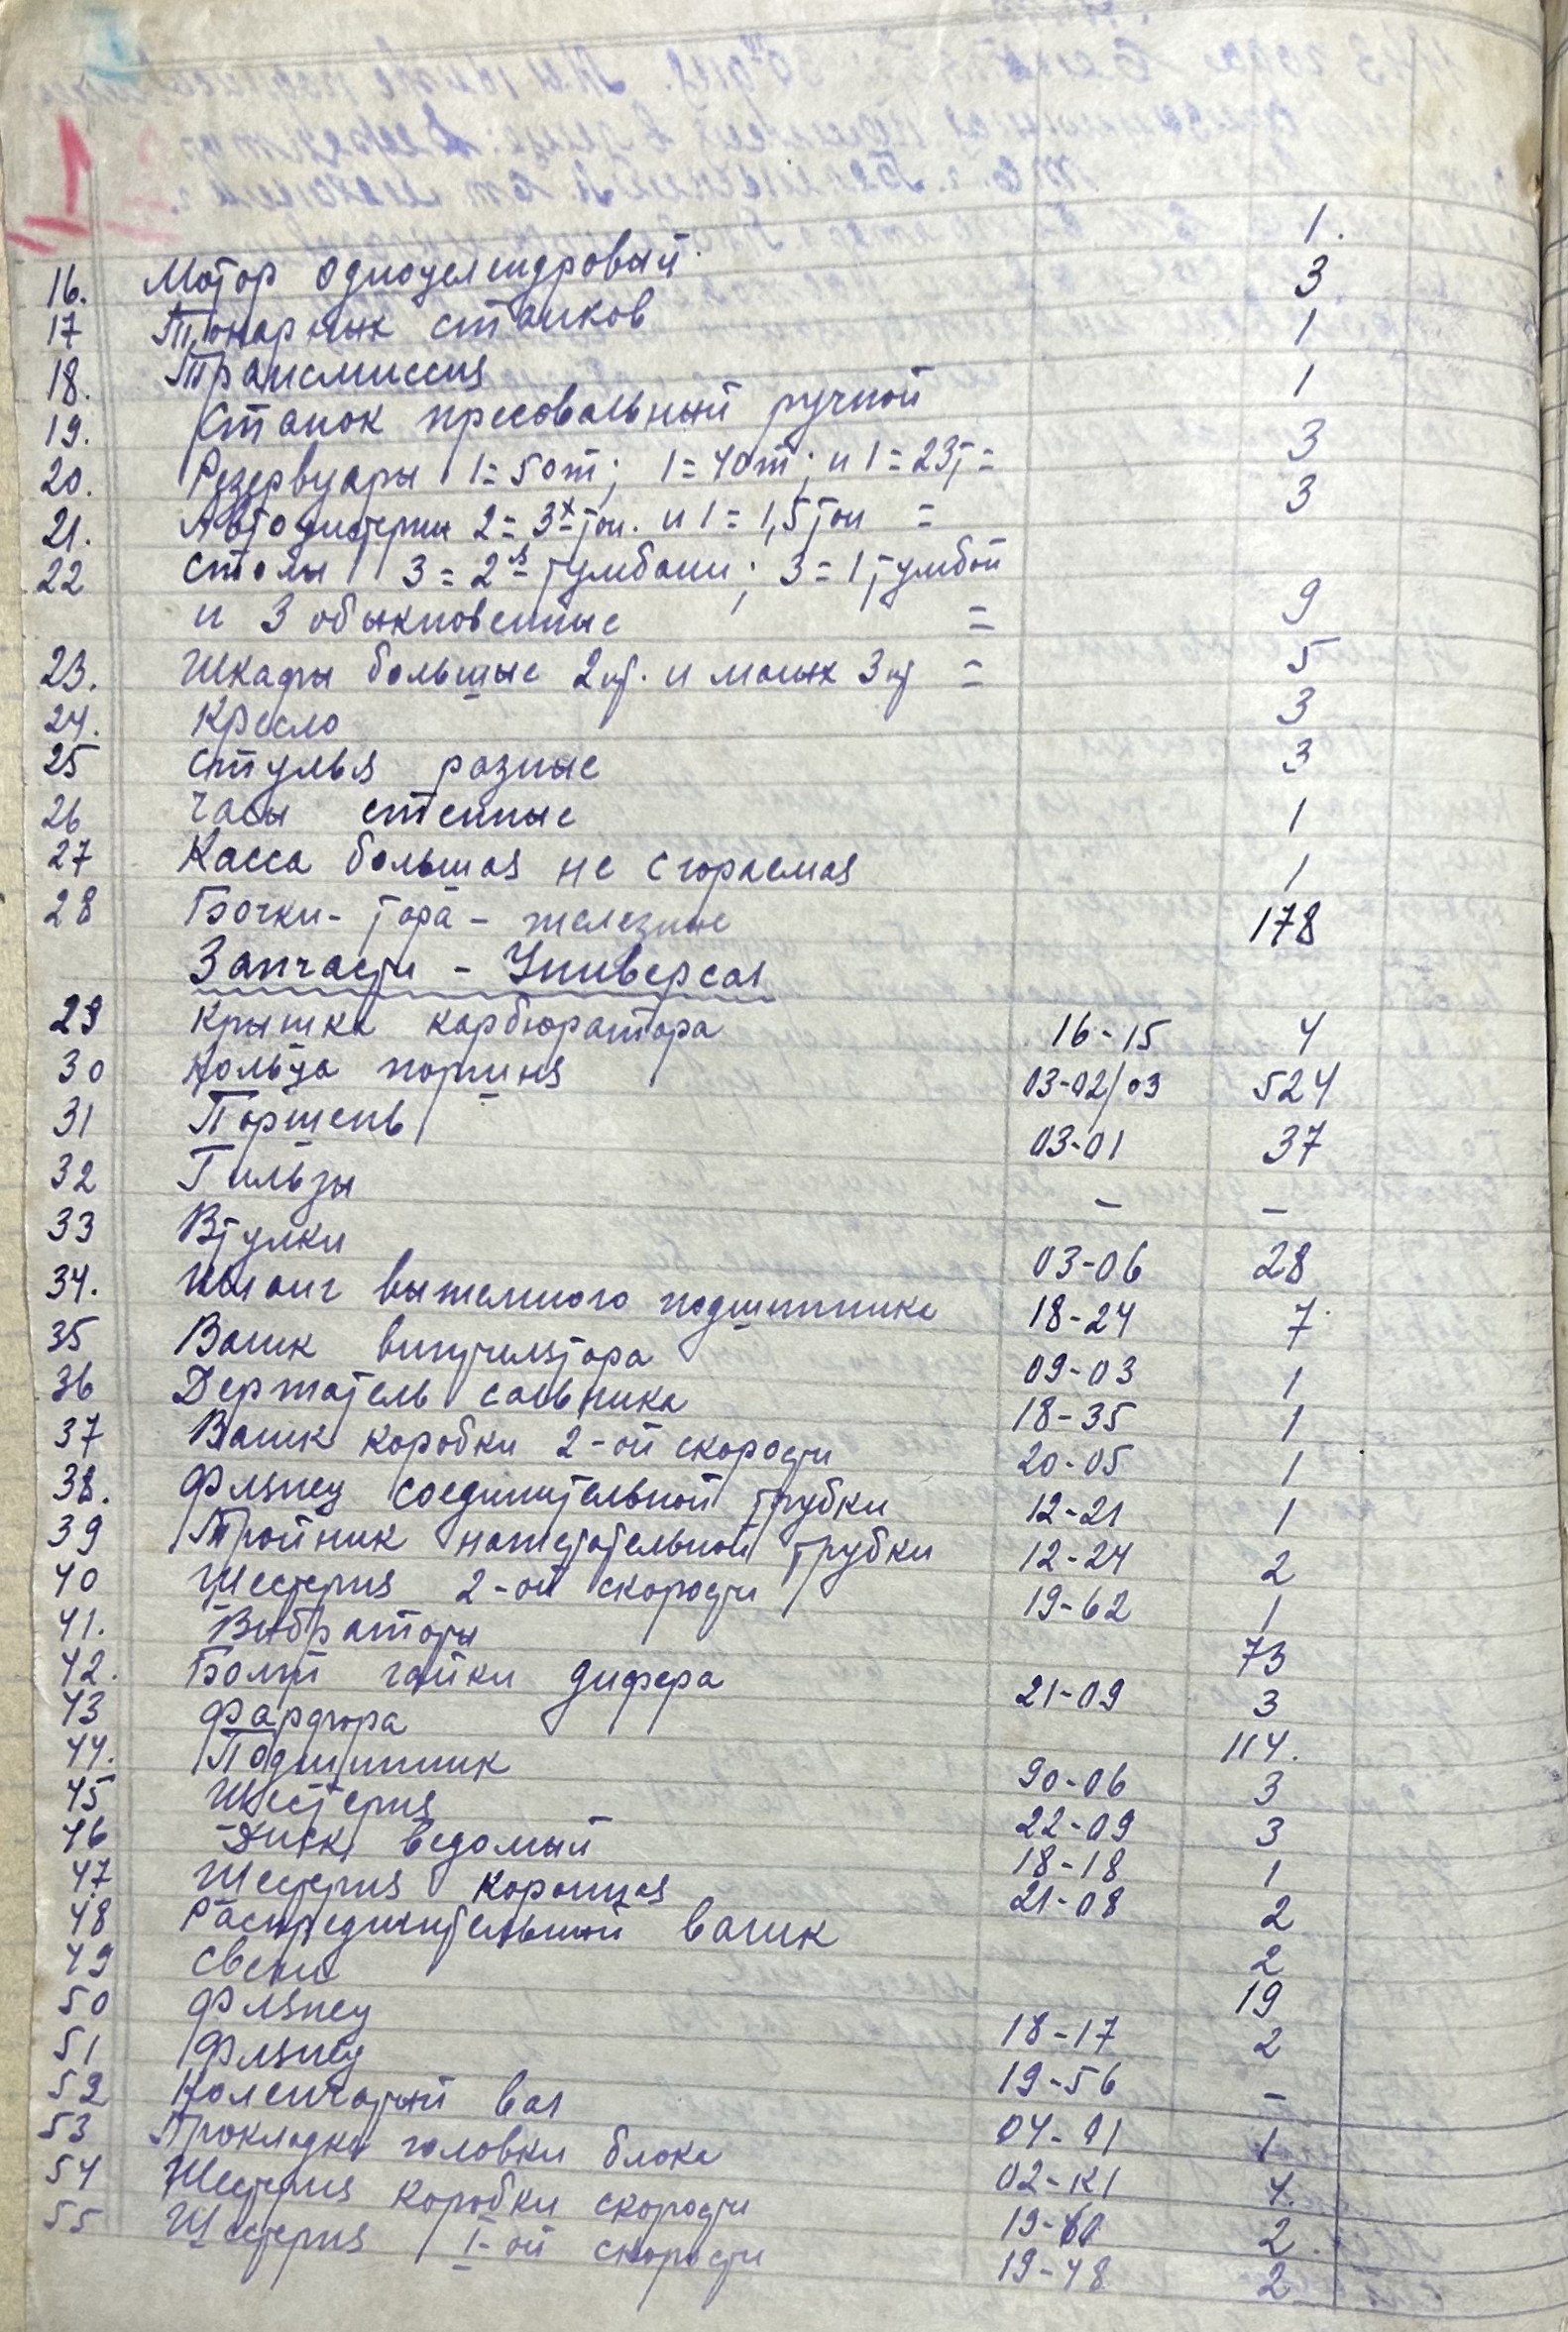 1
16. Мотор одноцелендровый. 1.
17 Токарных станков 3
18. Трансмиссия 1
19. Станок пресовальный ручной 1
20. Резервуары 1=50т; 1=40т; и 1=23т= 3
21. Автоцистерны 2=3х тон. и 1=1,5 тон = 3
22 Столы 3=2я тумбами; 3=1 тумбой
и 3 обыкновенные = 9
23. Шкафы большые 2 шт. и малых 3 шт = 5
24. Кресло 3
25 Стулья разные 3
26 Часы стенные 1
27 Касса большая не сгораемая 1
28 Бочки-тара-железные 178
Запчасти - Универсал
29 Крышка карбюратора 16-15 4
30 Кольца поршня 03-02/03 524
31 Поршень 03-01 37
32 Гильзы - -
33 Втулки 03-06 28
34. Шланг выжемного подшипника 18-24 7
35 Валик вентилятора 09-03 1
36 Держатель сальника 18-35 1
37 Валик коробки 2-ой скорости 20-05 1
38. Флянец соединительной трубки 12-21 1
39 Тройник нагнетательной трубки 12-24 2
40 Шестерня 2-ой скорости 19-62 1
41. Вибраторы 73
42. Болт гайки дифера 21-09 3
43 Фарфора 114.
44. Подшипник 90-06 3
45 Шестерня 22-09 3
46 Диск ведомый 18-18 1
47. Шестерня 21-08 2
48 Распределительный валик 2
49 Свечи 19
50 Флянец 18-17 2
51 Флянец 19-56 -
52 Коленчатый вал 04-01 1
53 Прокладка головки блока 02-К1 4.
54 Шестерня коробки скорости 2.
55 Шестерня I-ой скорости 19-48 2